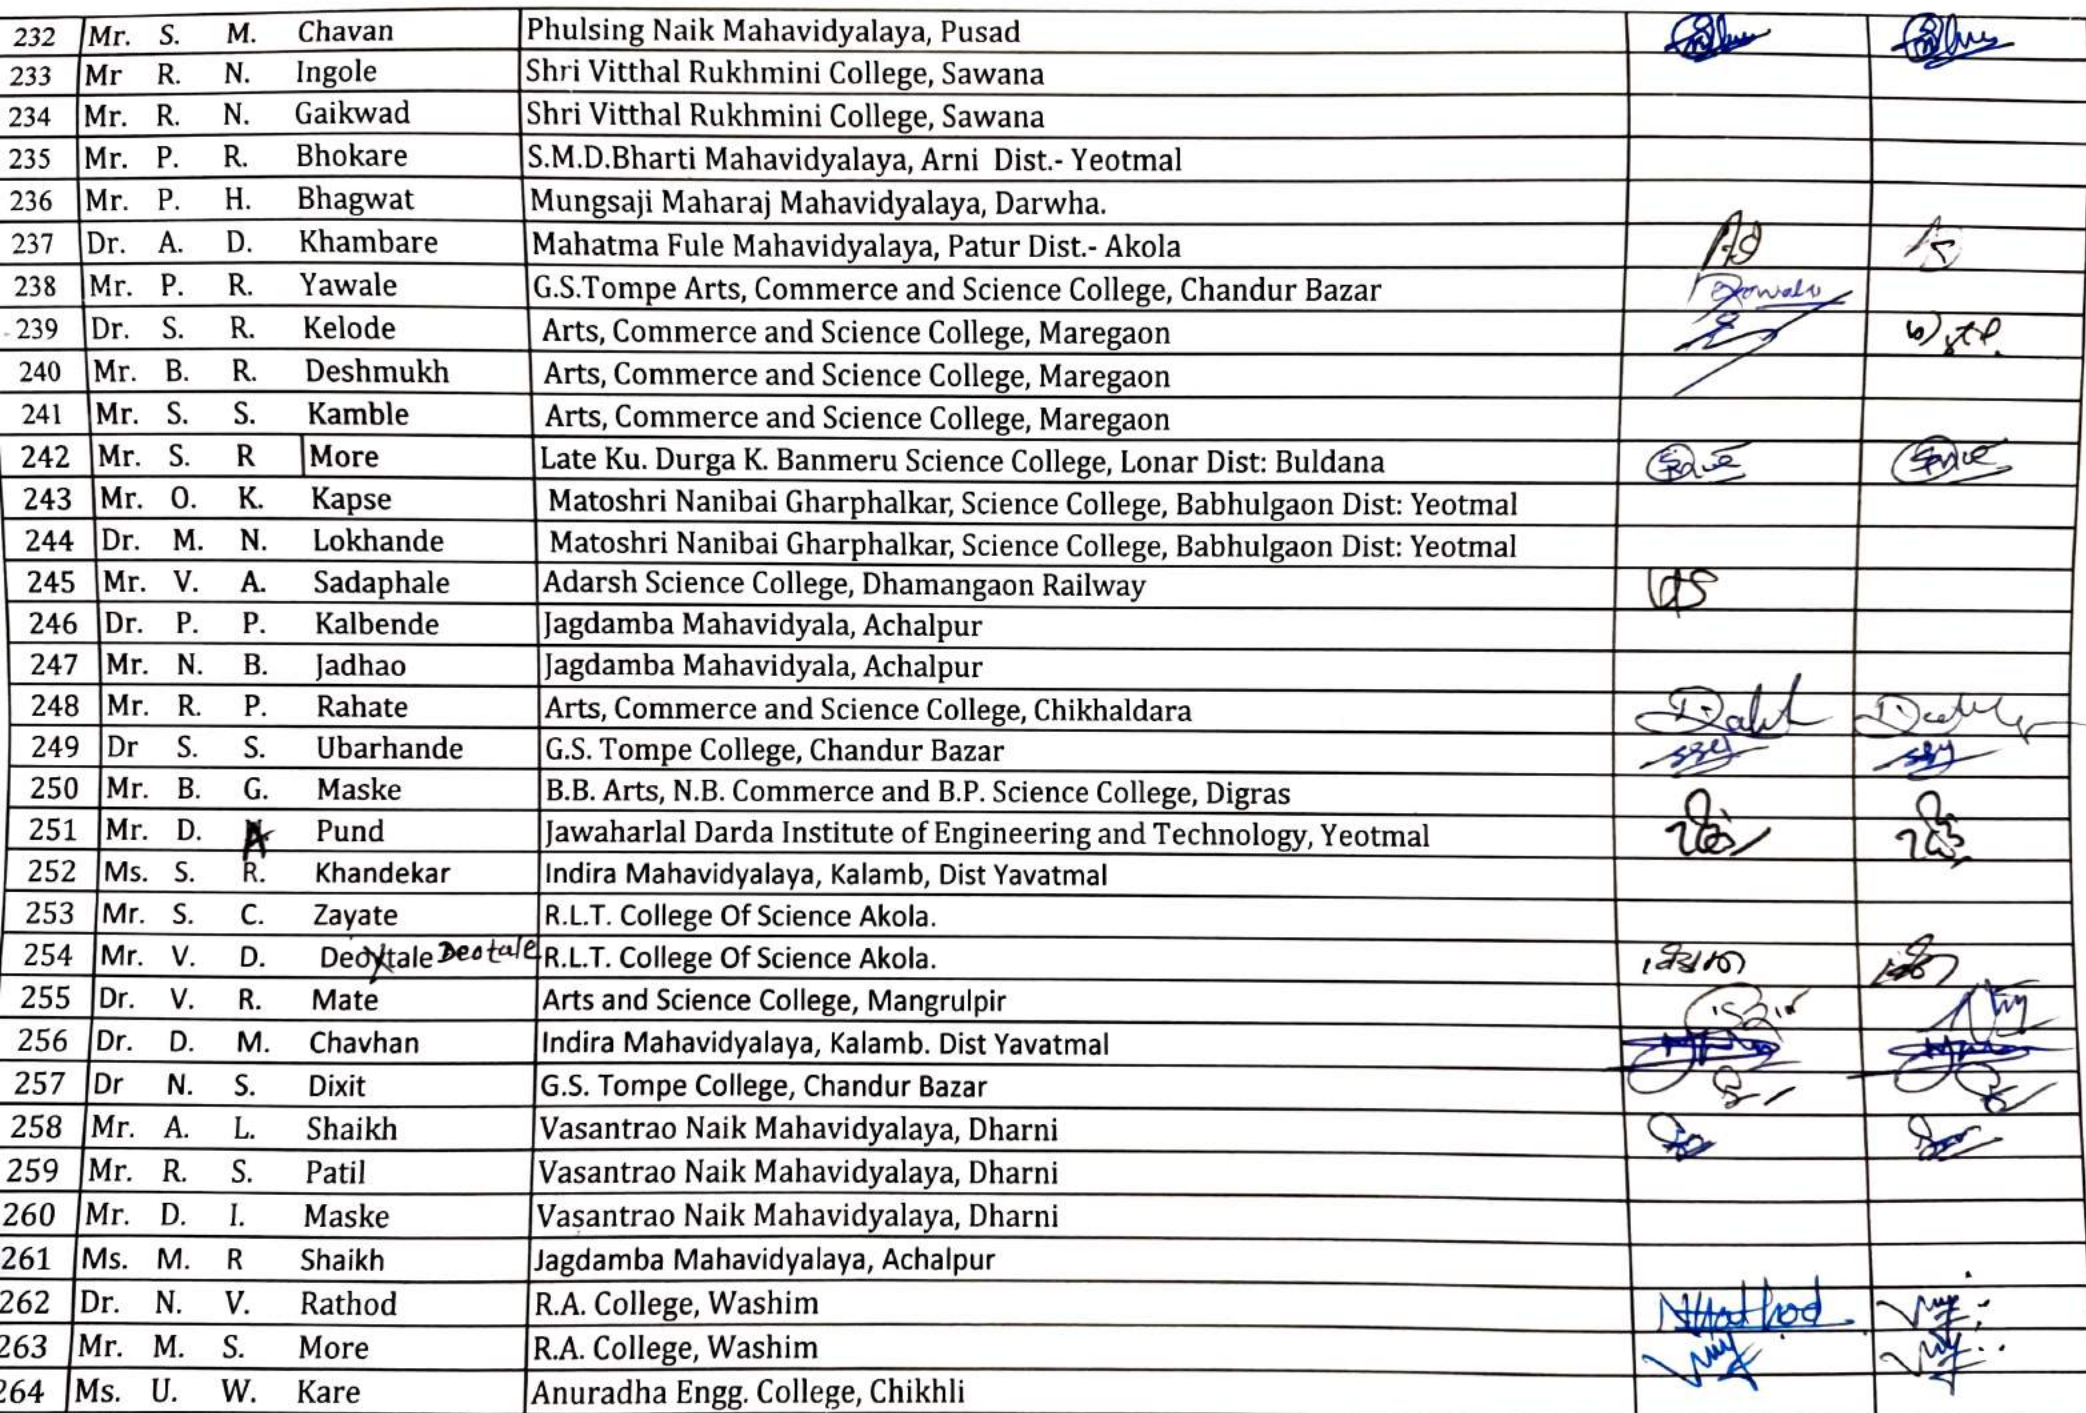 232 Mr. S. M. Chavan Phulsing Naik Mahavidyalaya, Pusad
233 Mr R. N. Ingole Shri Vitthal Rukhmini College, Sawana
234 Mr. R. N. Gaikwad Shri Vitthal Rukhmini College, Sawana
235 Mr. P. R. Bhokare S.M.D.Bharti Mahavidyalaya, Arni Dist.- Yeotmal
236 Mr. P. H. Bhagwat Mungsaji Maharaj Mahavidyalaya, Darwha.
237 Dr. A. D. Khambare Mahatma Fule Mahavidyalaya, Patur Dist.- Akola
238 Mr. P. R. Yawale G.S.Tompe Arts, Commerce and Science College, Chandur Bazar
239 Dr. S. R. Kelode Arts, Commerce and Science College, Maregaon
240 Mr. B. R. Deshmukh Arts, Commerce and Science College, Maregaon
241 Mr. S. S. Kamble Arts, Commerce and Science College, Maregaon
242 Mr. S. R More Late Ku. Durga K. Banmeru Science College, Lonar Dist: Buldana
243 Mr. O. K. Kapse Matoshri Nanibai Gharphalkar, Science College, Babhulgaon Dist: Yeotmal
244 Dr. M. N. Lokhande Matoshri Nanibai Gharphalkar, Science College, Babhulgaon Dist: Yeotmal
245 Mr. V. A. Sadaphale Adarsh Science College, Dhamangaon Railway
246 Dr. P. P. Kalbende Jagdamba Mahavidyala, Achalpur
247 Mr. N. B. Jadhao Jagdamba Mahavidyala, Achalpur
248 Mr. R. P. Rahate Arts, Commerce and Science College, Chikhaldara
249 Dr S. S. Ubarhande G.S. Tompe College, Chandur Bazar
250 Mr. B. G. Maske B.B. Arts, N.B. Commerce and B.P. Science College, Digras
251 Mr. D. A Pund Jawaharlal Darda Institute of Engineering and Technology, Yeotmal
252 Ms. S. R. Khandekar Indira Mahavidyalaya, Kalamb, Dist Yavatmal
253 Mr. S. C. Zayate R.L.T. College Of Science Akola.
254 Mr. V. D. Deotale R.L.T. College Of Science Akola.
255 Dr. V. R. Mate Arts and Science College, Mangrulpir
256 Dr. D. M. Chavhan Indira Mahavidyalaya, Kalamb. Dist Yavatmal
257 Dr N. S. Dixit G.S. Tompe College, Chandur Bazar
258 Mr. A. L. Shaikh Vasantrao Naik Mahavidyalaya, Dharni
259 Mr. R. S. Patil Vasantrao Naik Mahavidyalaya, Dharni
260 Mr. D. I. Maske Vasantrao Naik Mahavidyalaya, Dharni
261 Ms. M. R Shaikh Jagdamba Mahavidyalaya, Achalpur
262 Dr. N. V. Rathod R.A. College, Washim
263 Mr. M. S. More R.A. College, Washim
264 Ms. U. W. Kare Anuradha Engg. College, Chikhli